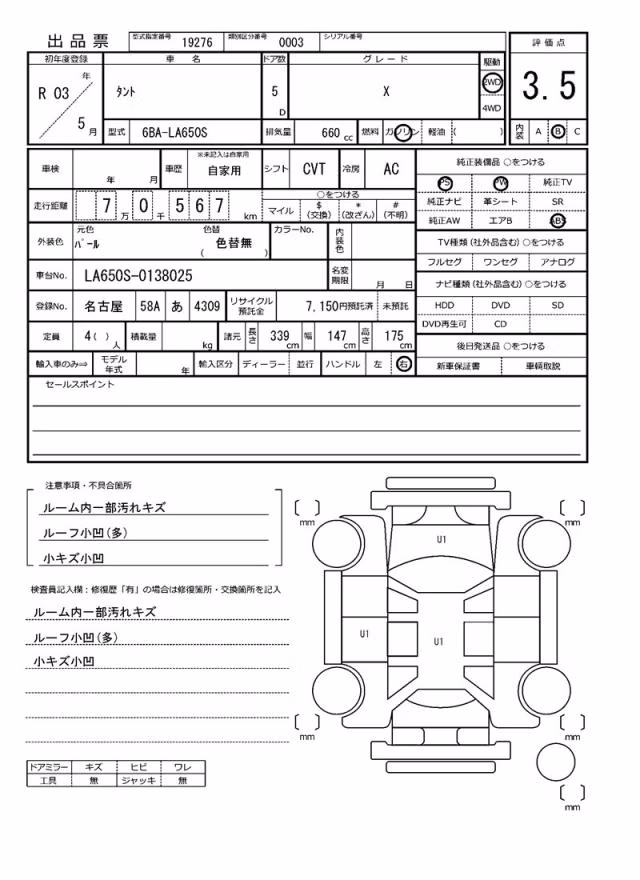 出品票 型式指定番号 19276 類別区分番号 0003 シリアル番号
評価点
3.5
初年度登録 車名 ドア数 グレード 駆動
R 03 年 5 月 タント 5 D X 2WD 4WD
型式 6BA-LA650S 排気量 660 cc 燃料 ガソリン 軽油 ( ) 内装 A B C
車検 年 月 車歴 ※未記入は自家用 自家用 シフト CVT 冷房 AC
走行距離 7 万 0 千 5 6 7 km ○をつける
マイル $ (交換) * (改ざん) # (不明)
外装色 元色 パール 色替 ( 色替無 ) カラーNo. 内装色
車台No. LA650S-0138025 名変期限 月 日
登録No. 名古屋 58A あ 4309 リサイクル預託金 7,150円預託済 未預託
定員 4( ) 人 積載量 kg 諸元 長さ 339 cm 幅 147 cm 高さ 175 cm
輸入車のみ⇒ モデル年式 年 輸入区分 ディーラー 並行 ハンドル 左 右
純正装備品 ○をつける
PS PW 純正TV
純正ナビ 革シート SR
純正AW エアB ABS
TV種類(社外品含む)○をつける
フルセグ ワンセグ アナログ
ナビ種類(社外品含む)○をつける
HDD DVD SD
DVD再生可 CD
後日発送品 ○をつける
新車保証書 車輌取説
セールスポイント
注意事項・不具合箇所
ルーム内一部汚れキズ
ルーフ小凹(多)
小キズ小凹
検査員記入欄:修復歴「有」の場合は修復箇所・交換箇所を記入
ルーム内一部汚れキズ
ルーフ小凹(多)
小キズ小凹
ドアミラー キズ ヒビ ワレ
工具 無 ジャッキ 無
mm mm
U1
U1 U1
mm mm
mm